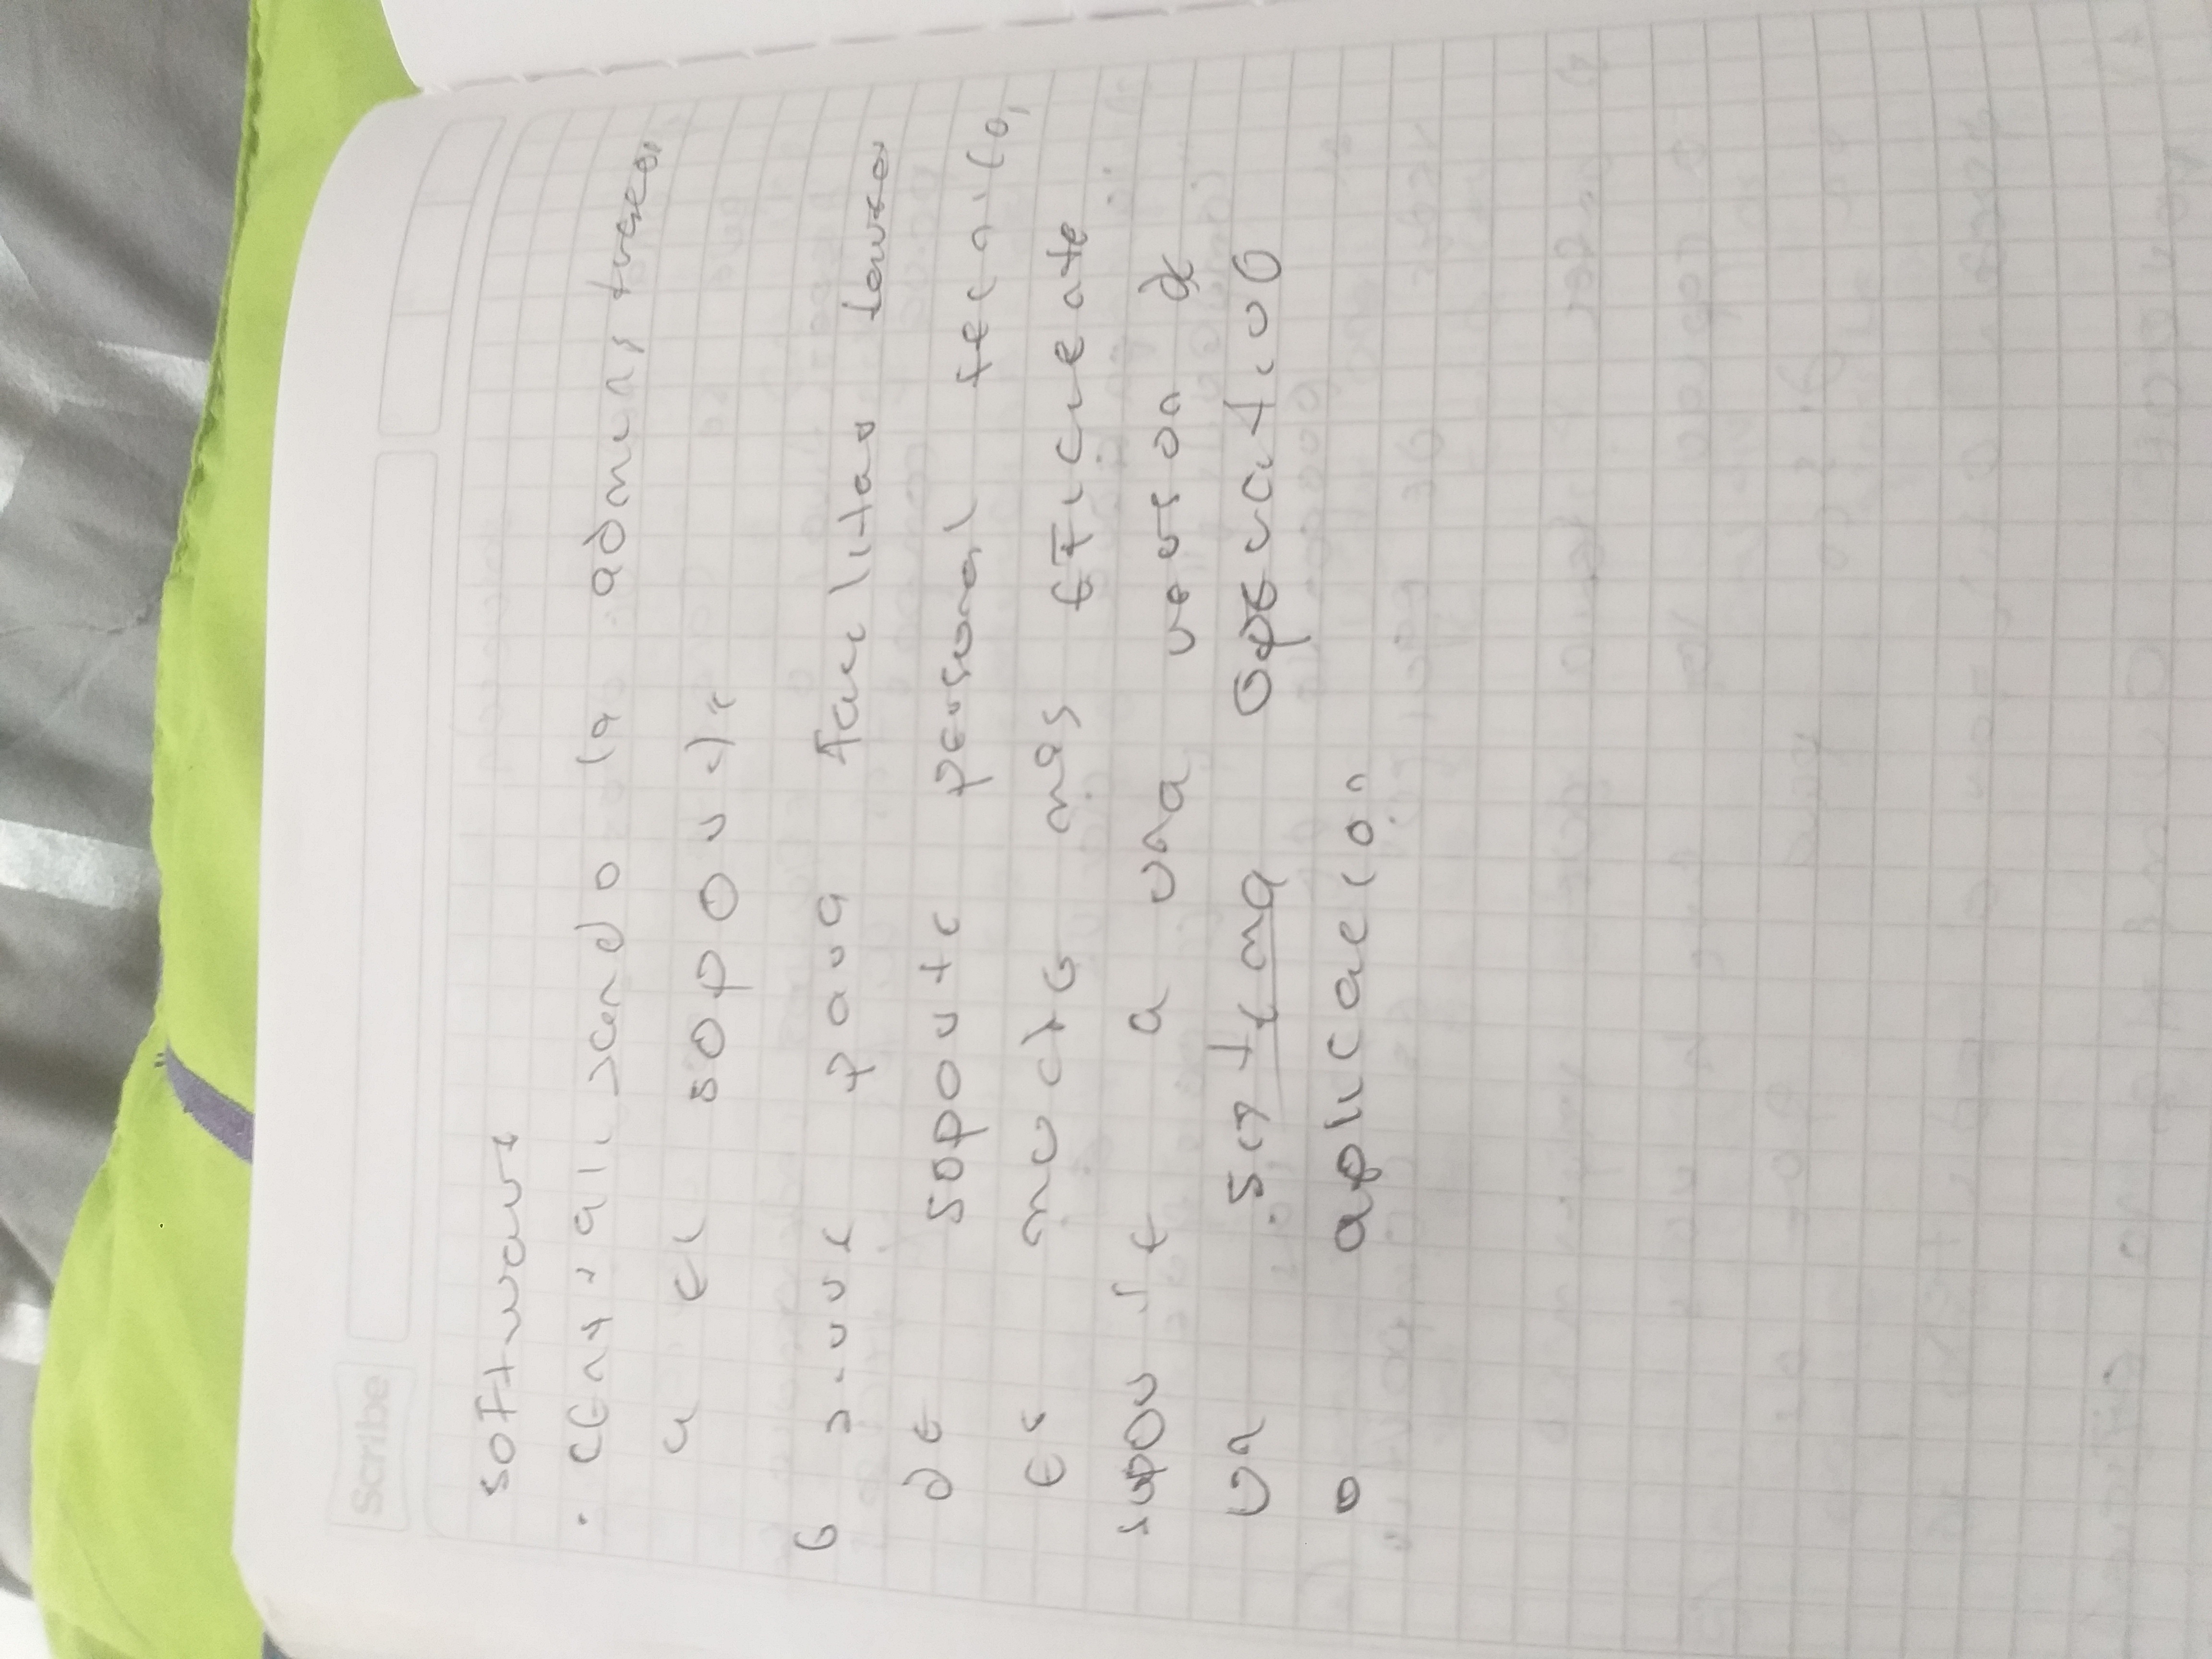 Scribe
software
· centralizando la administracion
a el soporte
6 sirve para facilitar tareas
de soporte personal tecnico,
es mucho mas eficiente
soporte a una version de
un sistema operativo
o aplicacion